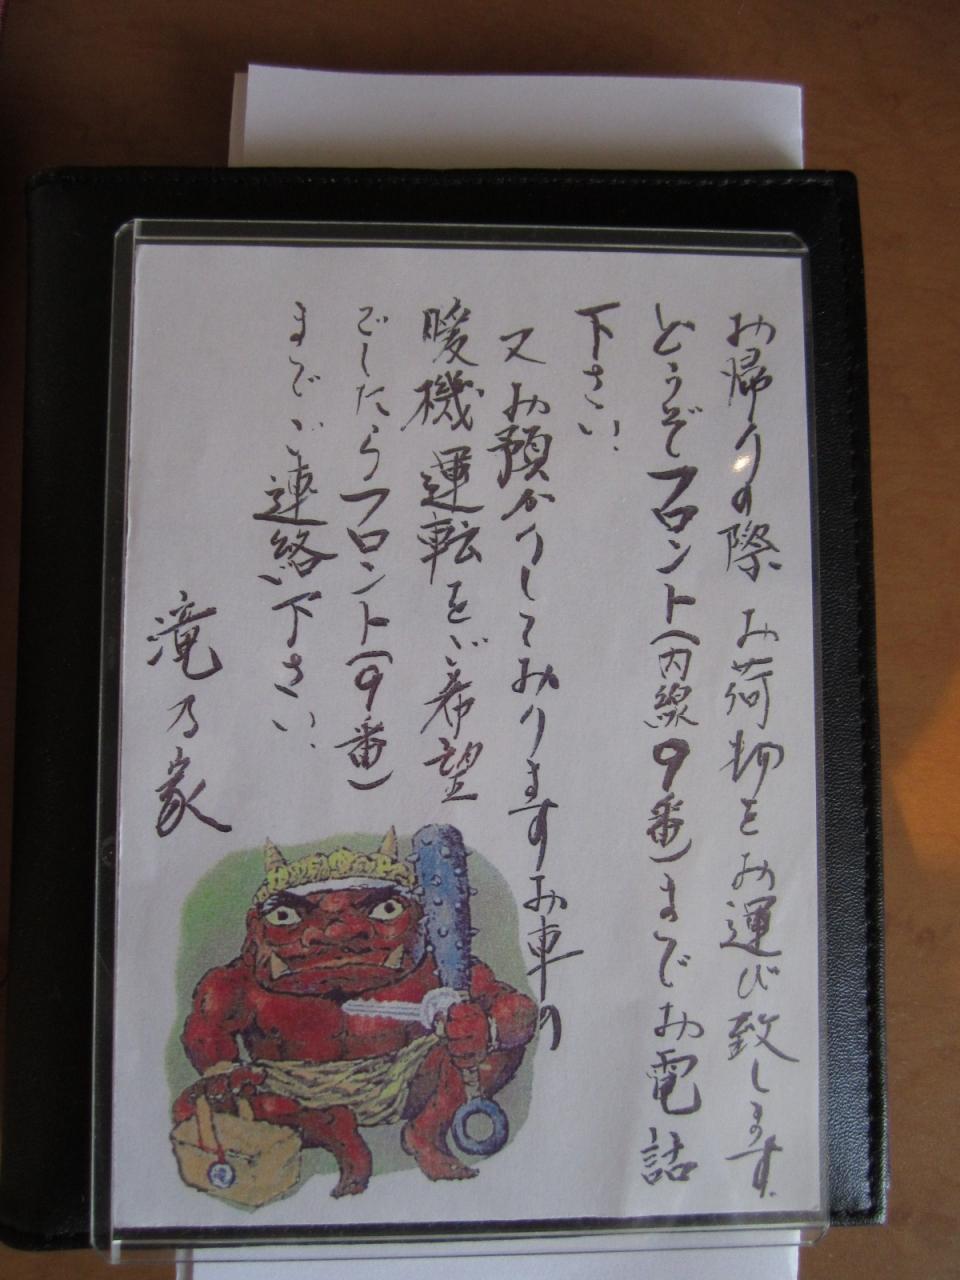 お帰りの際 お荷物をお運び致します。
どうぞフロント(内線9番)までお電話
下さい。
又お預かりしておりますお車の
暖機運転をご希望
でしたらフロント(9番)
までご連絡下さい。
滝乃家